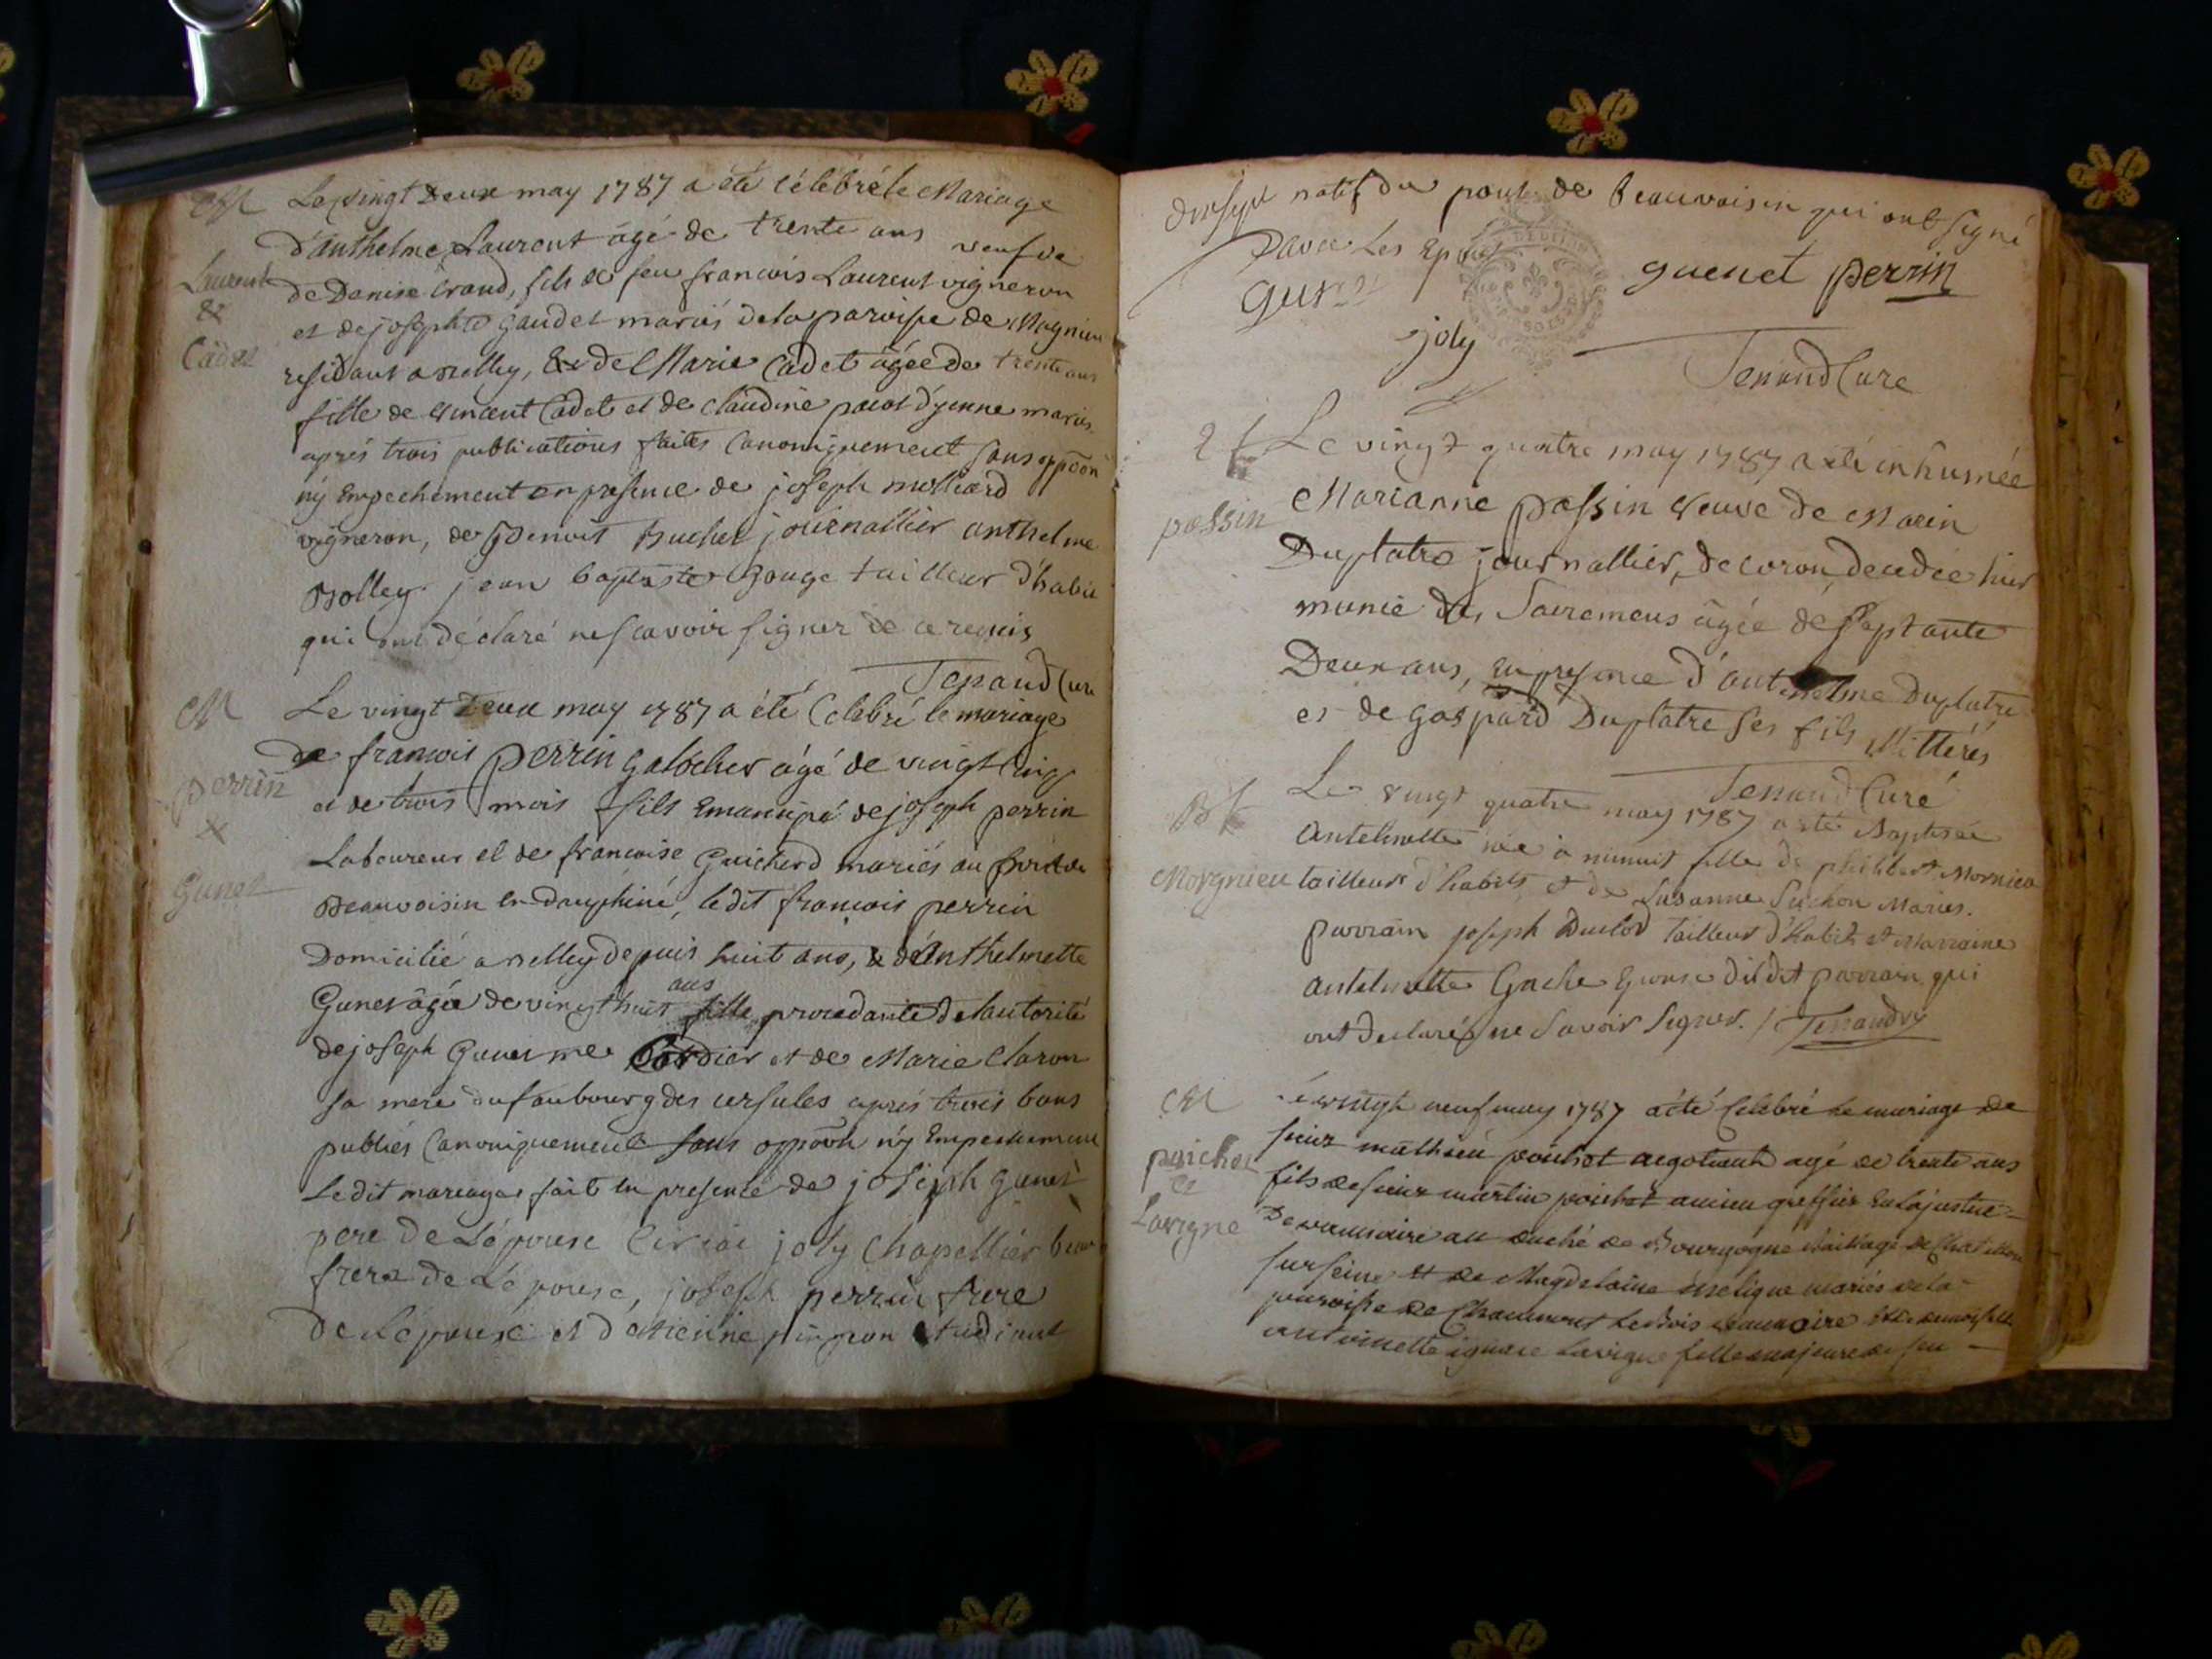 M Le vingt Deux may 1787 a été célébré le Mariage
d'anthelme Laurent âgé de trente ans veuf de
Laurent de Denise Craud, fils de feu francois Laurent vigneron
& et de josephte Gaudet mariés de la paroisse de Magnieu
Cadet residant a Belley, & de Marie Cadet âgée de trente ans
fille de vincent Cadet et de claudine d'yenne mariés
aprés trois publications faites Canoniquement sans oppoon
ny Empechement en presence de joseph molliard
vigneron, de Benoit Buchet journallier anthelme
Bolley jean baptiste Gouge tailleur d'habit
qui ont déclaré ne scavoir signer de ce requis
Tenand Curé
M Le vingt deux may 1787 a été Celebré le mariage
de francois perrin galocher âgé de vingt cinq
perrin et de trois mois fils Emancipé de joseph perrin
&
Laboureur et de francoise Guicherd mariés au pont de
Gunet
Beauvoisin en Dauphiné, ledit francois perrin
Domicilié a Belley depuis huit ans, & d'Anthelmette
ans
Gunet âgée de vingt huit fille procedante de l'autorité
de joseph Gunet me Cordier et de Marie Claron
sa mere du faubourg des ursules aprés trois bans
publiés Canoniquement sans oppoon ny Empechement
Ledit mariage fait en presence de joseph Gunet
pere de L'épouse joly Chapellier beau
frere de L'épouse, joseph perrin frere
De L'époux et d'etienne pingeon etudiant
natif du pont de Beauvoisin qui ont signé
avec Les Epoux
guenet perrin
joly
Tenand Cure
Le vingt quatre may 1787 a été inhumée
passin Marianne passin veuve de Marin
Duplatre journallier, de coron decedée hier
munie des Sacremens âgée de septante
Deux ans, en presence d'anthelme Duplatre
et de gaspard Duplatre ses fils illitérés
Tenand Curé
B Le vingt quatre may 1787 a été Baptisée
Antelmette née à minuit fille de philibert Mornieu
Morgnieu tailleur d'habits et de Susanne Suchon Mariés.
parrain joseph Duclod tailleur d'habits et Marraine
antelmette Gache Epouse dudit parrain qui
ont declaré ne Savoir Signer. / Tenand
M Le vingt neuf may 1787 a été Celebré le mariage de
sieur mathieu poichot negotiant agé de trente ans
poichot fils de sieur martin poichot ancien greffier en la justice
&
Lavigne De vannaire au duché de Bourgogne baillage de Chatillon
sur seine et de Magdelaine mariés de la
paroisse de Chaumont Le Bois vannaire et de demoiselle
antoinette Lavigne fille majeure de feu